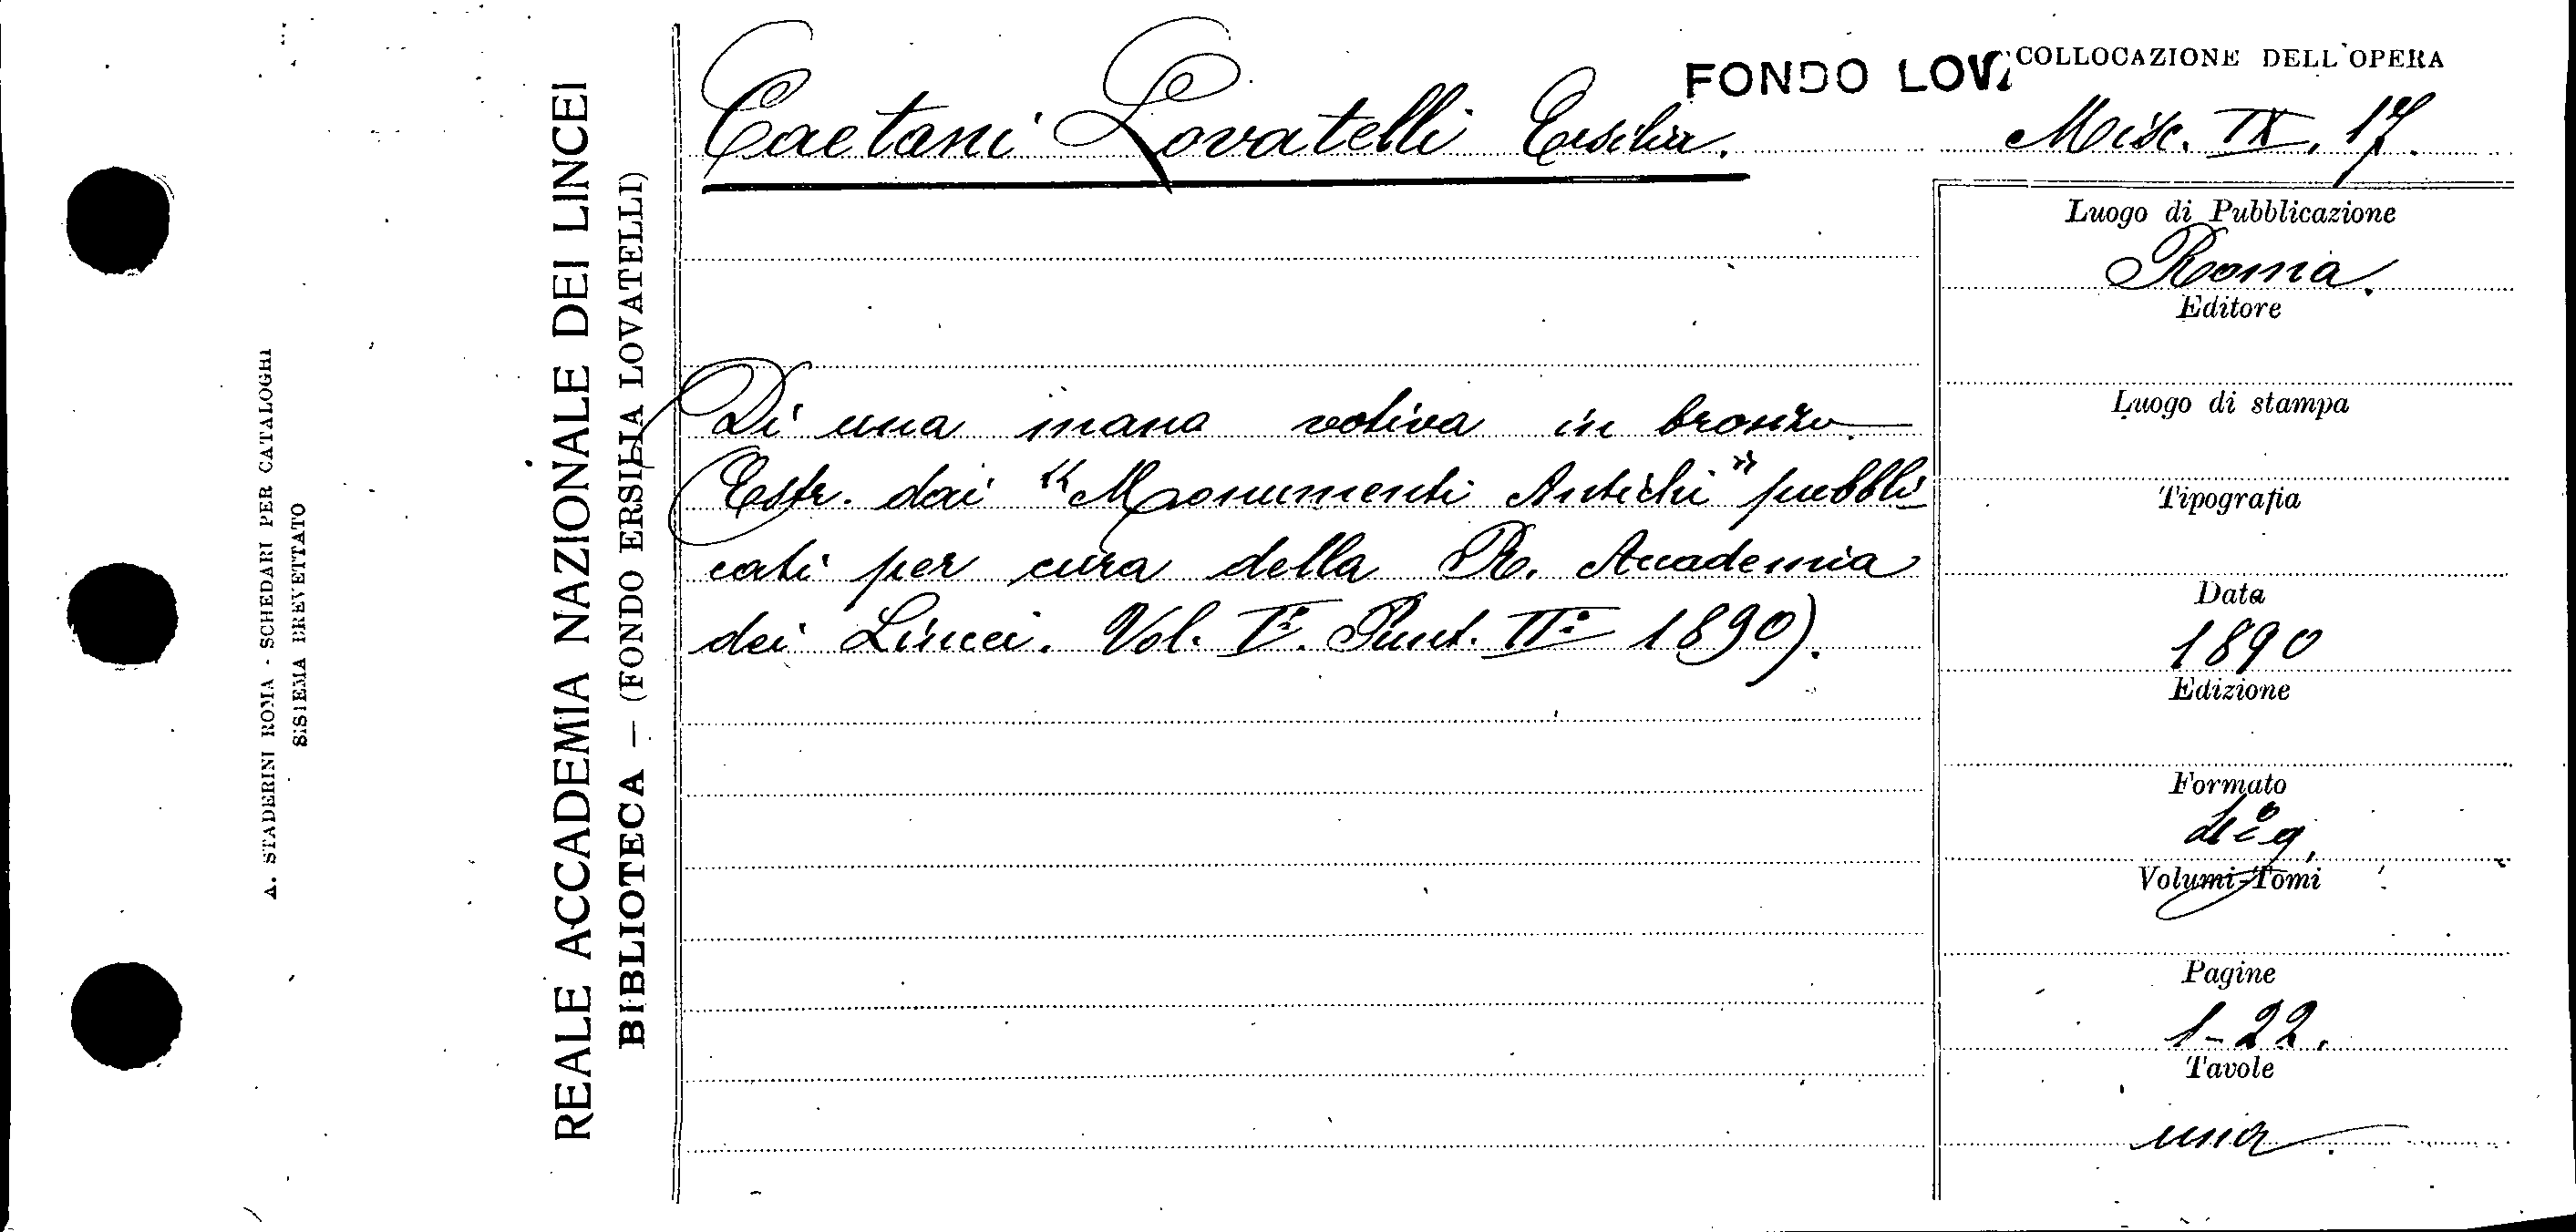 A. STADERINI ROMA - SCHEDARI PER CATALOGHI
SISTEMA BREVETTATO
REALE ACCADEMIA NAZIONALE DEI LINCEI
BIBLIOTECA — (FONDO ERSILIA LOVATELLI)
FONDO LOVA
COLLOCAZIONE DELL'OPERA
Caetani Lovatelli Ersilia.
Misc. IX. 17.
Di una mano votiva in bronzo
Estr. dai "Monumenti Antichi" pubbli
cati per cura della R. Accademia
dei Lincei. Vol. I° Punt. II° 1890).
Luogo di Pubblicazione
Roma.
Editore
Luogo di stampa
Tipografia
Data
1890
Edizione
Formato
4° g.
Volumi-Tomi
Pagine
1-22.
Tavole
una